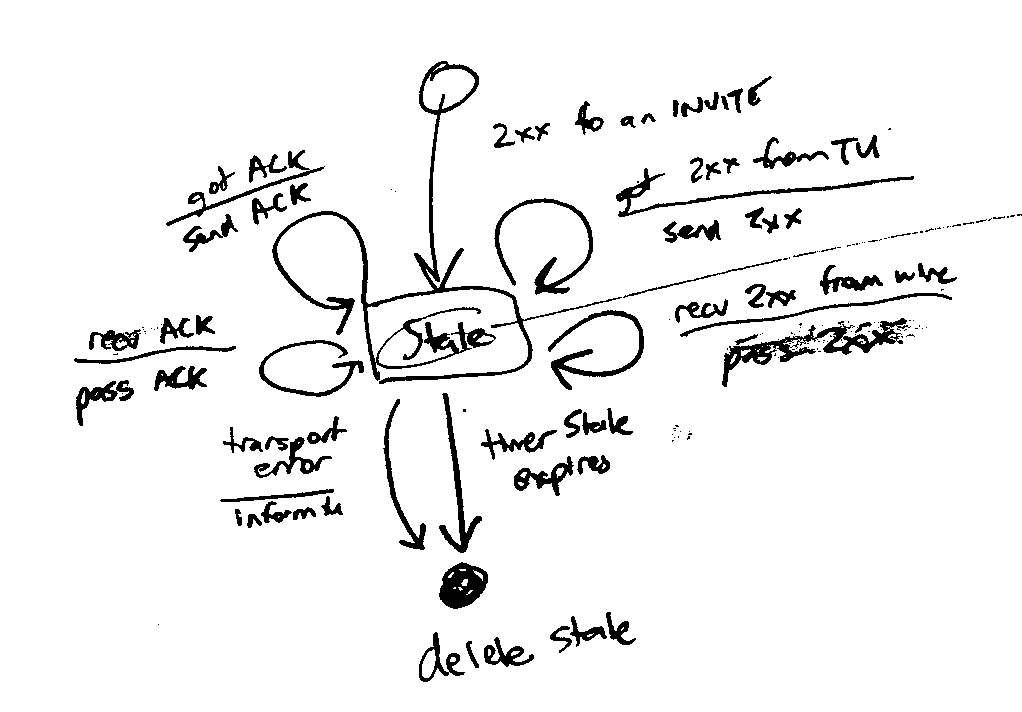 2xx to an INVITE
got ACK
send ACK
got 2xx from TU
send 2xx
recv ACK
pass ACK
Stale
recv 2xx from wire
pass 2xx
transport
error
inform tu
timer Stale
expires
delete stale